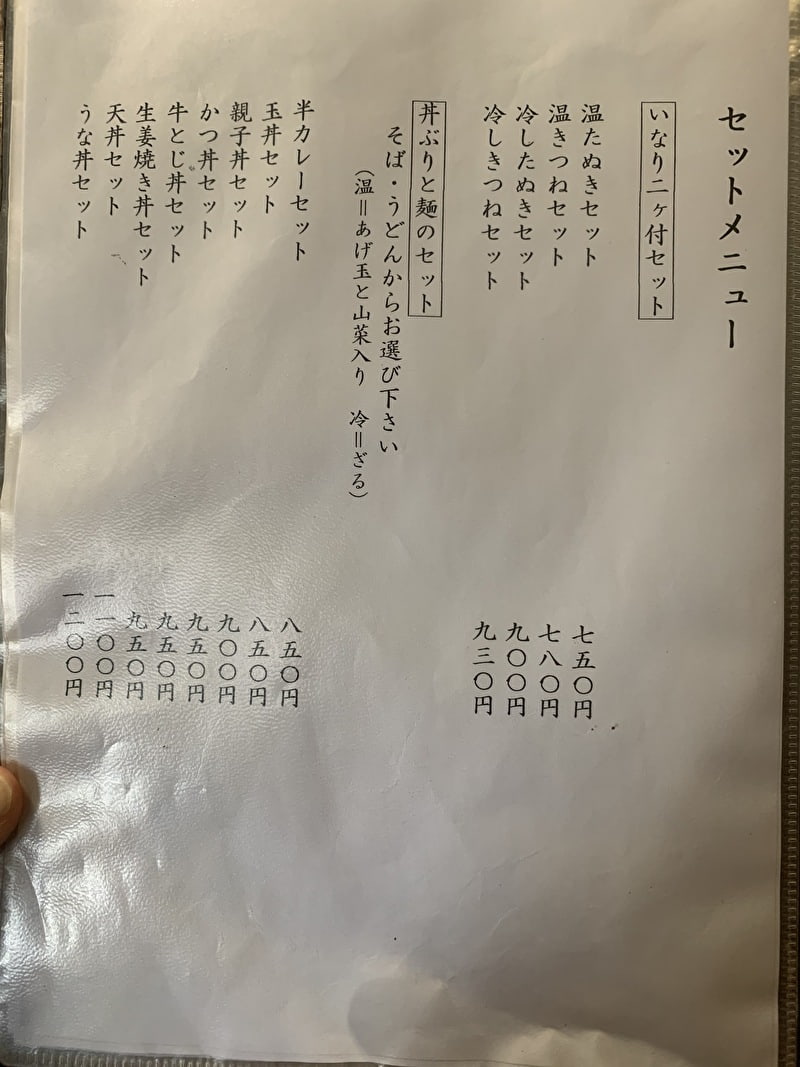 セットメニュー
いなり二ヶ付セット
温たぬきセット　七五〇円
温きつねセット　七八〇円
冷したぬきセット　九〇〇円
冷しきつねセット　九三〇円
丼ぶりと麺のセット
そば・うどんからお選び下さい
（温＝あげ玉と山菜入り　冷＝ざる）
半カレーセット　八五〇円
玉丼セット　八五〇円
親子丼セット　九〇〇円
かつ丼セット　九五〇円
牛とじ丼セット　九五〇円
生姜焼き丼セット　九五〇円
天丼セット　一一〇〇円
うな丼セット　一二〇〇円